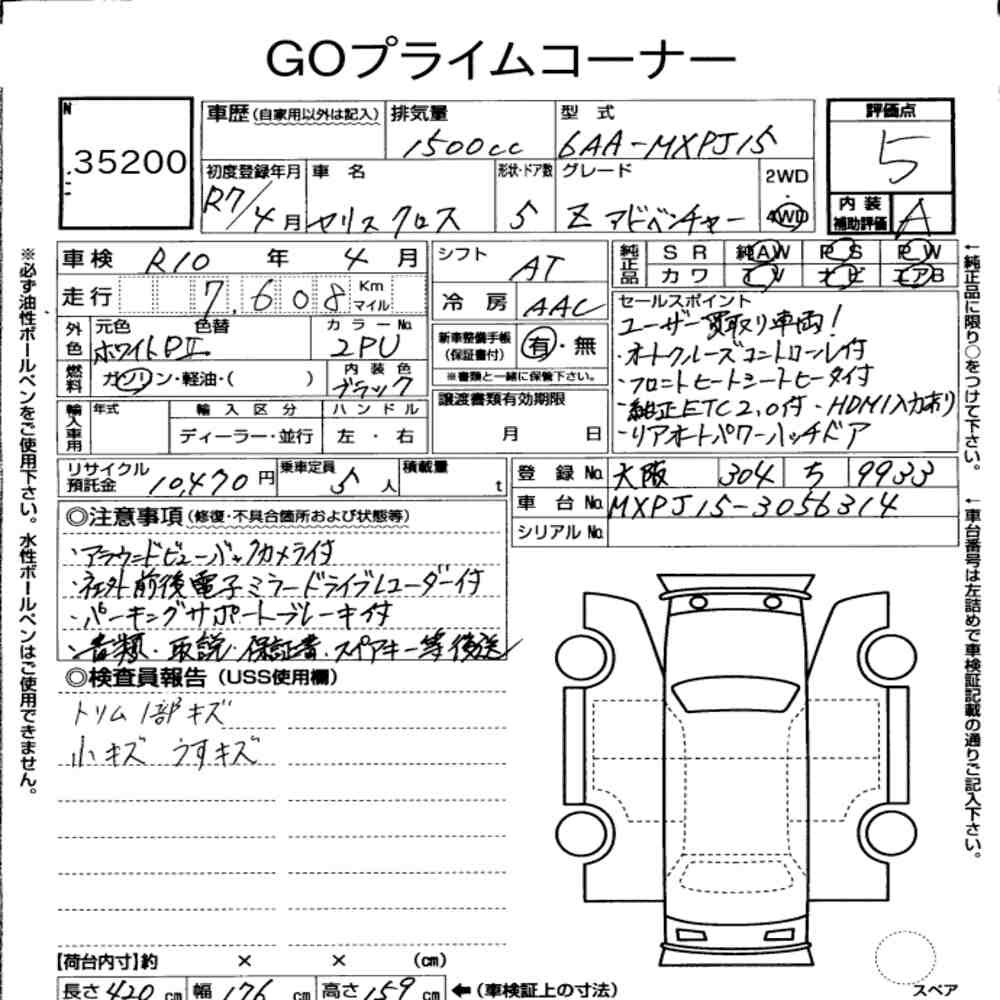 GOプライムコーナー
N
35200
車歴(自家用以外は記入)
排気量 1500cc
型式 6AA-MXPJ15
評価点 5
初度登録年月 R7/4月
車名 ヤリスクロス
形状・ドア数 5
グレード Z アドベンチャー
2WD
4WD
内装補助評価 A
車検 R10年 4月
走行 7,608 Km マイル
シフト AT
冷房 AAC
純正品 SR 純AW PS PW
カワ TV ナビ エアB
外色 元色 色替 ホワイトPⅡ
カラーNo. 2PU
燃料 ガソリン・軽油・( )
内装色 ブラック
新車整備手帳(保証書付) 有・無
※書類と一緒に保管下さい。
セールスポイント
ユーザー買取り車両!
・オートクルーズコントロール付
・フロントヒートシートヒータ付
・純正ETC2.0付・HDMI入力有り
・リアオートパワーハッチドア
輸入車用 年式 輸入区分 ハンドル
ディーラー・並行 左・右
譲渡書類有効期限
月 日
リサイクル預託金 10,470円
乗車定員 5人
積載量 t
登録No. 大阪 304 ち 9933
車台No. MXPJ15-3056314
シリアルNo.
◎注意事項(修復・不具合箇所および状態等)
・アラウンドビューバックカメラ付
・社外前後電子ミラードライブレコーダー付
・パーキングサポートブレーキ付
・書類・取説・保証書・スペアキー等後送
◎検査員報告(USS使用欄)
トリム1部キズ
小キズ うすキズ
【荷台内寸】約 × × (cm)
長さ 420 cm 幅 176 cm 高さ 159 cm ←(車検証上の寸法)
スペア
※必ず油性ボールペンをご使用下さい。水性ボールペンはご使用できません。
←純正品に限り○をつけて下さい。
←車台番号は左詰めで車検証記載の通りご記入下さい。